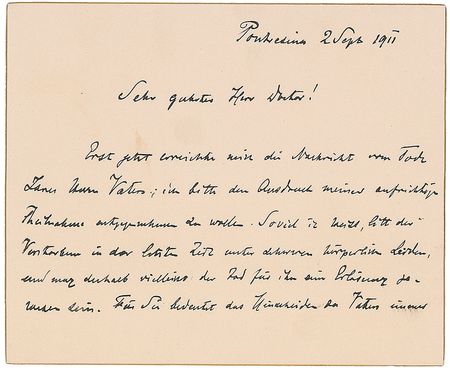 Pontresina 2 Sept 1911
Sehr geehrter Herr Doctor!
Erst jetzt erreichte mich die Nachricht vom Tode
Ihres Herrn Vaters; ich bitte den Ausdruck meiner aufrichtigen
Theilnahme entgegennehmen zu wollen. Soviel ich weiß, litt der
Verstorbene in der letzten Zeit unter schweren körperlichen Leiden,
und mag deshalb vielleicht der Tod für ihn eine Erlösung ge-
wesen sein. Für Sie bedeutet das Hinscheiden des Vaters immer